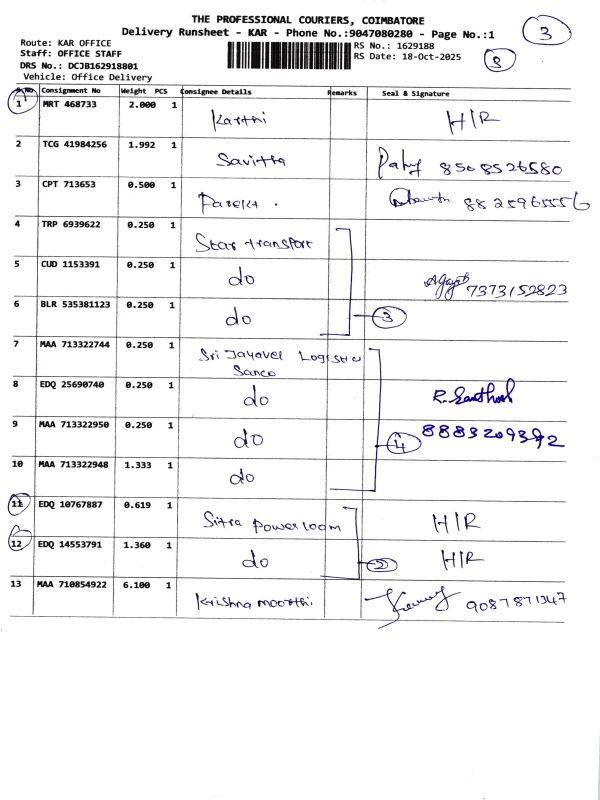 THE PROFESSIONAL COURIERS, COIMBATORE
Delivery Runsheet - KAR - Phone No.:9047080280 - Page No.:1
3
Route: KAR OFFICE
RS No.: 1629188
Staff: OFFICE STAFF
RS Date: 18-Oct-2025
8
DRS No.: DCJB162918801
Vehicle: Office Delivery
S.No Consignment No Weight PCS Consignee Details Remarks Seal & Signature
1 MRT 468733 2.000 1 Karthi H/R
2 TCG 41984256 1.992 1 Savitha 8508526580
3 CPT 713653 0.500 1 8825965556
4 TRP 6939622 0.250 1 Star transport
5 CUD 1153391 0.250 1 do 7373152823
6 BLR 535381123 0.250 1 do 3
7 MAA 713322744 0.250 1 Sri Jayavel Logistic
Sanco
8 EDQ 25690740 0.250 1 do R. Santhosh
9 MAA 713322950 0.250 1 do 4 8883209392
10 MAA 713322948 1.333 1 do
11 EDQ 10767887 0.619 1 Sitra Powerloom H/R
12 EDQ 14553791 1.360 1 do 2 H/R
13 MAA 710854922 6.100 1 Krishna moorthi. 9087871347